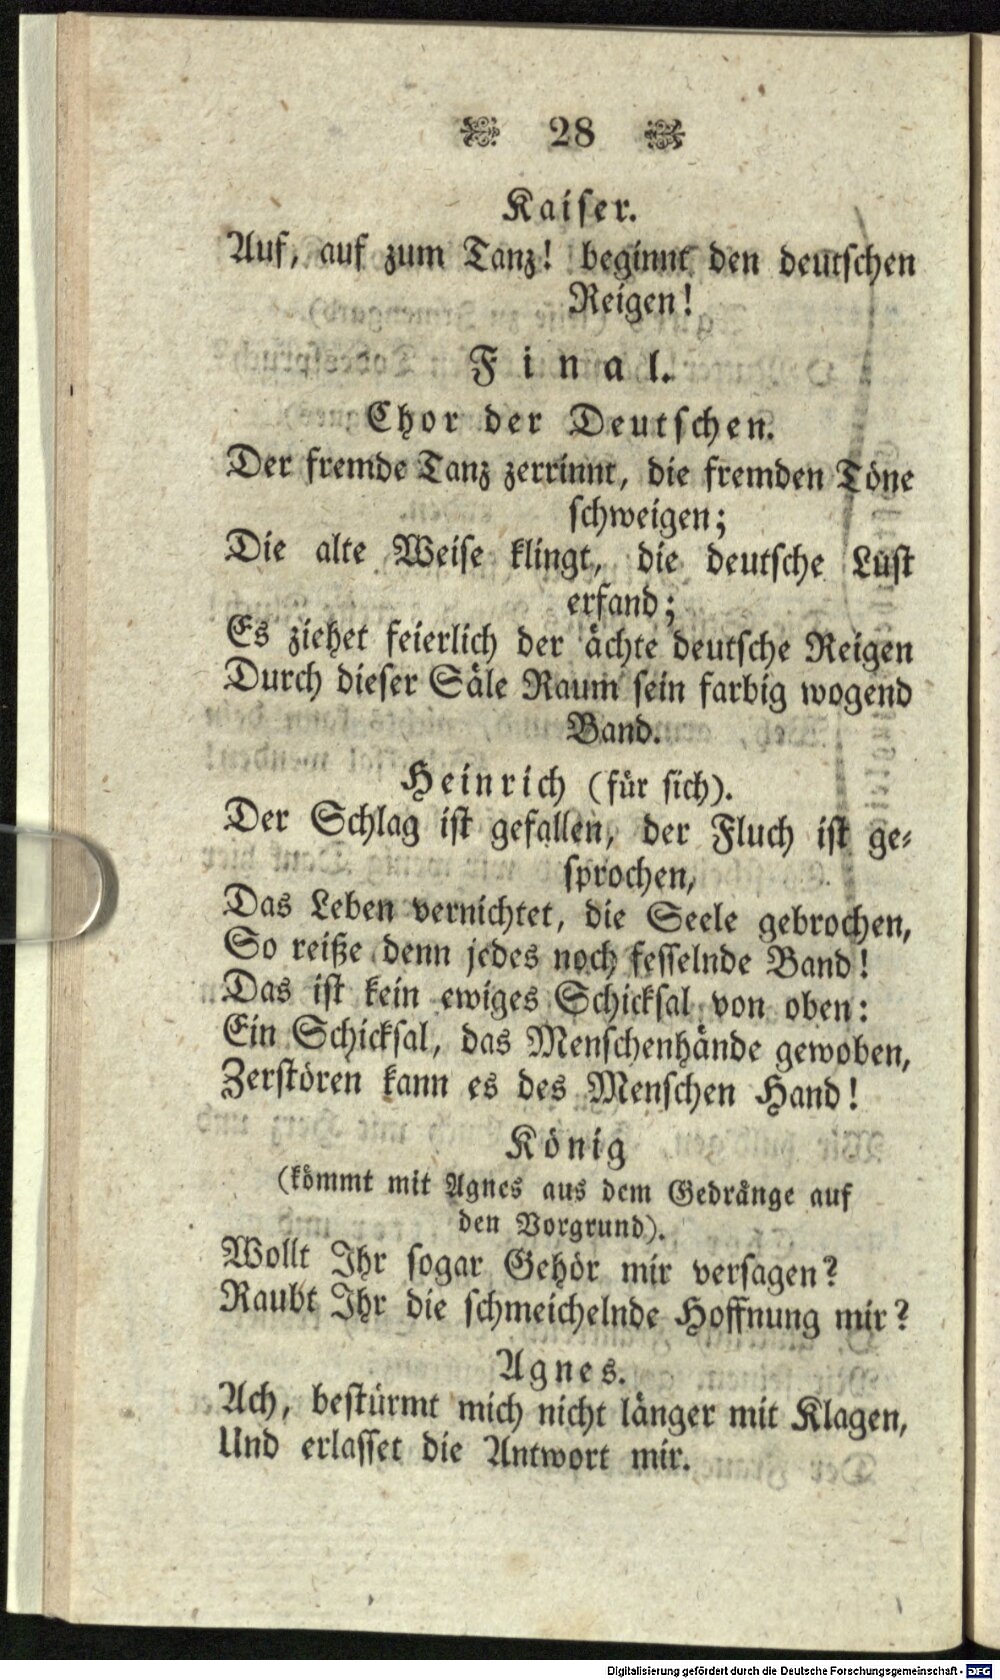 28
Kaiser.
Auf, auf zum Tanz! beginnt den deutschen
Reigen!
Final.
Chor der Deutschen.
Der fremde Tanz zerrinnt, die fremden Töne
schweigen;
Die alte Weise klingt, die deutsche Lust
erfand;
Es ziehet feierlich der ächte deutsche Reigen
Durch dieser Säle Raum sein farbig wogend
Band.
Heinrich (für sich).
Der Schlag ist gefallen, der Fluch ist ge-
sprochen,
Das Leben vernichtet, die Seele gebrochen,
So reiße denn jedes noch fesselnde Band!
Das ist kein ewiges Schicksal von oben:
Ein Schicksal, das Menschenhände gewoben,
Zerstören kann es des Menschen Hand!
König
(kömmt mit Agnes aus dem Gedränge auf
den Vorgrund).
Wollt Ihr sogar Gehör mir versagen?
Raubt Ihr die schmeichelnde Hoffnung mir?
Agnes.
Ach, bestürmt mich nicht länger mit Klagen,
Und erlasset die Antwort mir.
Digitalisierung gefördert durch die Deutsche Forschungsgemeinschaft - DFG